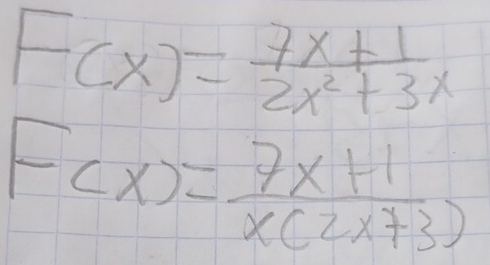 F(x) = (7x + 1)/(2x² + 3x)
F(x) = (7x + 1)/(x(2x + 3))